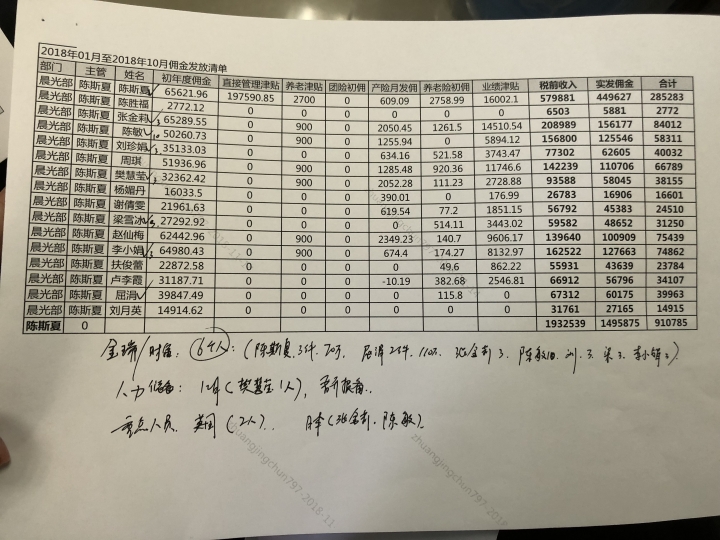 2018年01月至2018年10月佣金发放清单
部门 主管 姓名 初年度佣金 直接管理津贴 养老津贴 团险初佣 产险月发佣 养老险初佣 业绩津贴 税前收入 实发佣金 合计
晨光部 陈斯夏 陈斯夏 65621.96 197590.85 2700 0 609.09 2758.99 16002.1 579881 449627 285283
晨光部 陈斯夏 陈胜福 2772.12 0 0 0 0 0 0 6503 5881 2772
晨光部 陈斯夏 张金莉 65289.55 0 900 0 2050.45 1261.5 14510.54 208989 156177 84012
晨光部 陈斯夏 陈敏 50260.73 0 900 0 1255.94 0 5894.12 156800 125546 58311
晨光部 陈斯夏 刘珍娟 35133.03 0 0 0 634.16 521.58 3743.47 77302 62605 40032
晨光部 陈斯夏 周琪 51936.96 0 900 0 1285.48 920.36 11746.6 142239 110706 66789
晨光部 陈斯夏 樊慧莹 32362.42 0 900 0 2052.28 111.23 2728.88 93588 58045 38155
晨光部 陈斯夏 杨媚丹 16033.5 0 0 0 390.01 0 176.99 26783 16906 16601
晨光部 陈斯夏 谢倩雯 21961.63 0 0 0 619.54 77.2 1851.15 56792 45383 24510
晨光部 陈斯夏 梁雪冰 27292.92 0 0 0 0 514.11 3443.02 59582 48652 31250
晨光部 陈斯夏 赵仙梅 62442.96 0 900 0 2349.23 140.7 9606.17 139640 100909 75439
晨光部 陈斯夏 李小娟 64980.43 0 900 0 674.4 174.27 8132.97 162522 127663 74862
晨光部 陈斯夏 扶俊蕾 22872.58 0 0 0 0 49.6 862.22 55931 43639 23784
晨光部 陈斯夏 卢李霞 31187.71 0 0 0 -10.19 382.68 2546.81 66912 56796 34107
晨光部 陈斯夏 屈涓 39847.49 0 0 0 0 115.8 0 67312 60175 39963
晨光部 陈斯夏 刘月英 14914.62 0 0 0 0 0 0 31761 27165 14915
陈斯夏 0 1932539 1495875 910785
金瑞/财富: 6个人: (陈斯夏.3件.70万 张金莉 3. 陈敏 刘.3. 梁 3. 李小娟
人力储备: 12月(樊慧莹1人),
重点人员. (2人). (张金莉.陈敏).
zhuangjingchun797-2018-11
zhuangjingchun797-2018-11